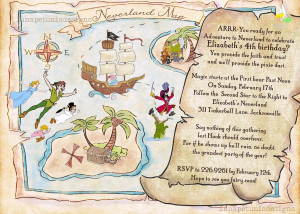 pinkpetunindesigns
Neverland Map
N
W
E
S
ARRR-You ready for an
Adventure to Neverland to celebrate
Elizabeth's 4th birthday?
You provide the faith and trust
and we'll provide the pixie dust.
Magic starts at the First hour Past Noon
On Sunday, February 17th
Follow the Second Star to the Right to
Elizabeth's Neverland
311 Timberball Lane, Jacksonville
Say nothing of this gathering
lest Hook should overhear.
For if he shows up he'll ruin, no doubt,
the grandest party of the year!
RSVP to 226.9261 by February 12th
Hope to see you fairy soon!